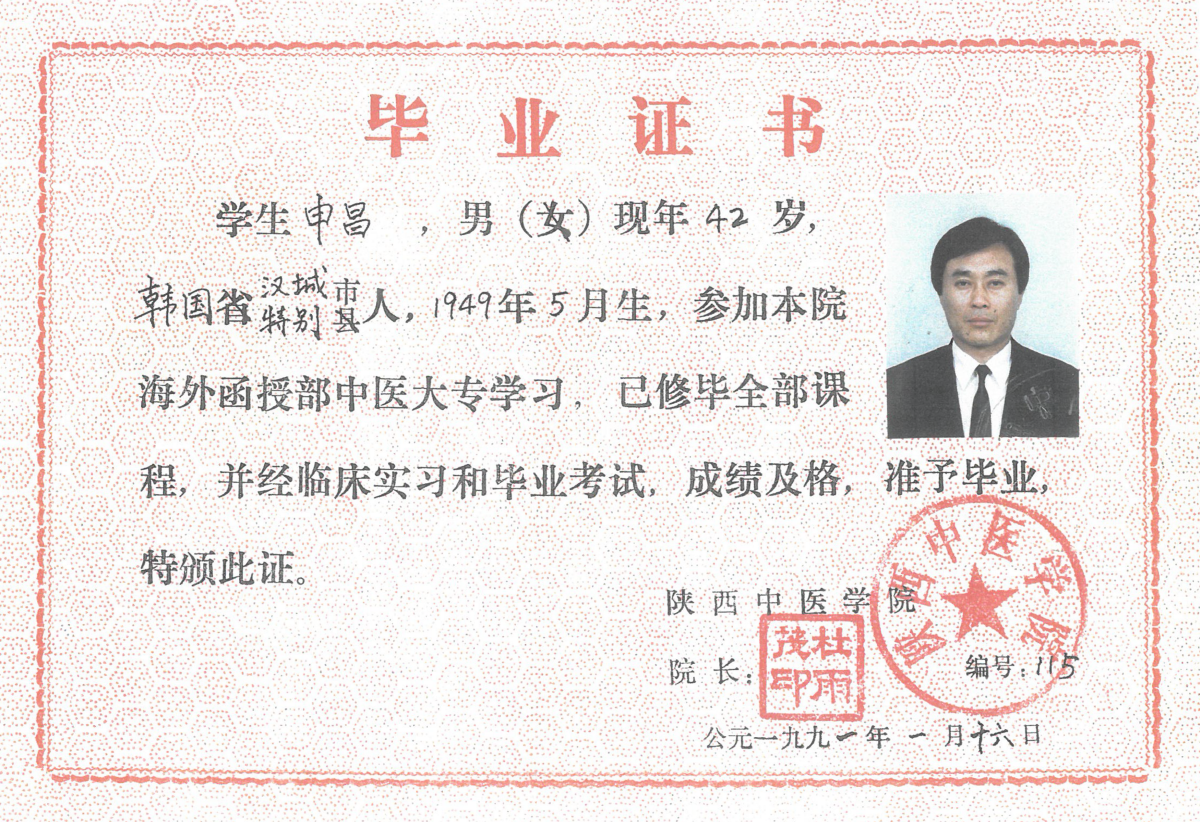 毕业证书
学生申昌，男（女）现年42岁，
韩国省汉城特别市县人，1949年5月生，参加本院
海外函授部中医大专学习，已修毕全部课
程，并经临床实习和毕业考试，成绩及格，准予毕业，
特颁此证。
陕西中医学院
陕西中医学院
院长：
杜雨茂印
编号：115
公元一九九一年一月十六日